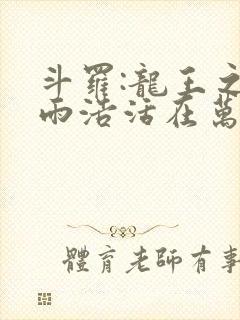 斗羅:龍王之
雨浩活在萬
體育老師有事